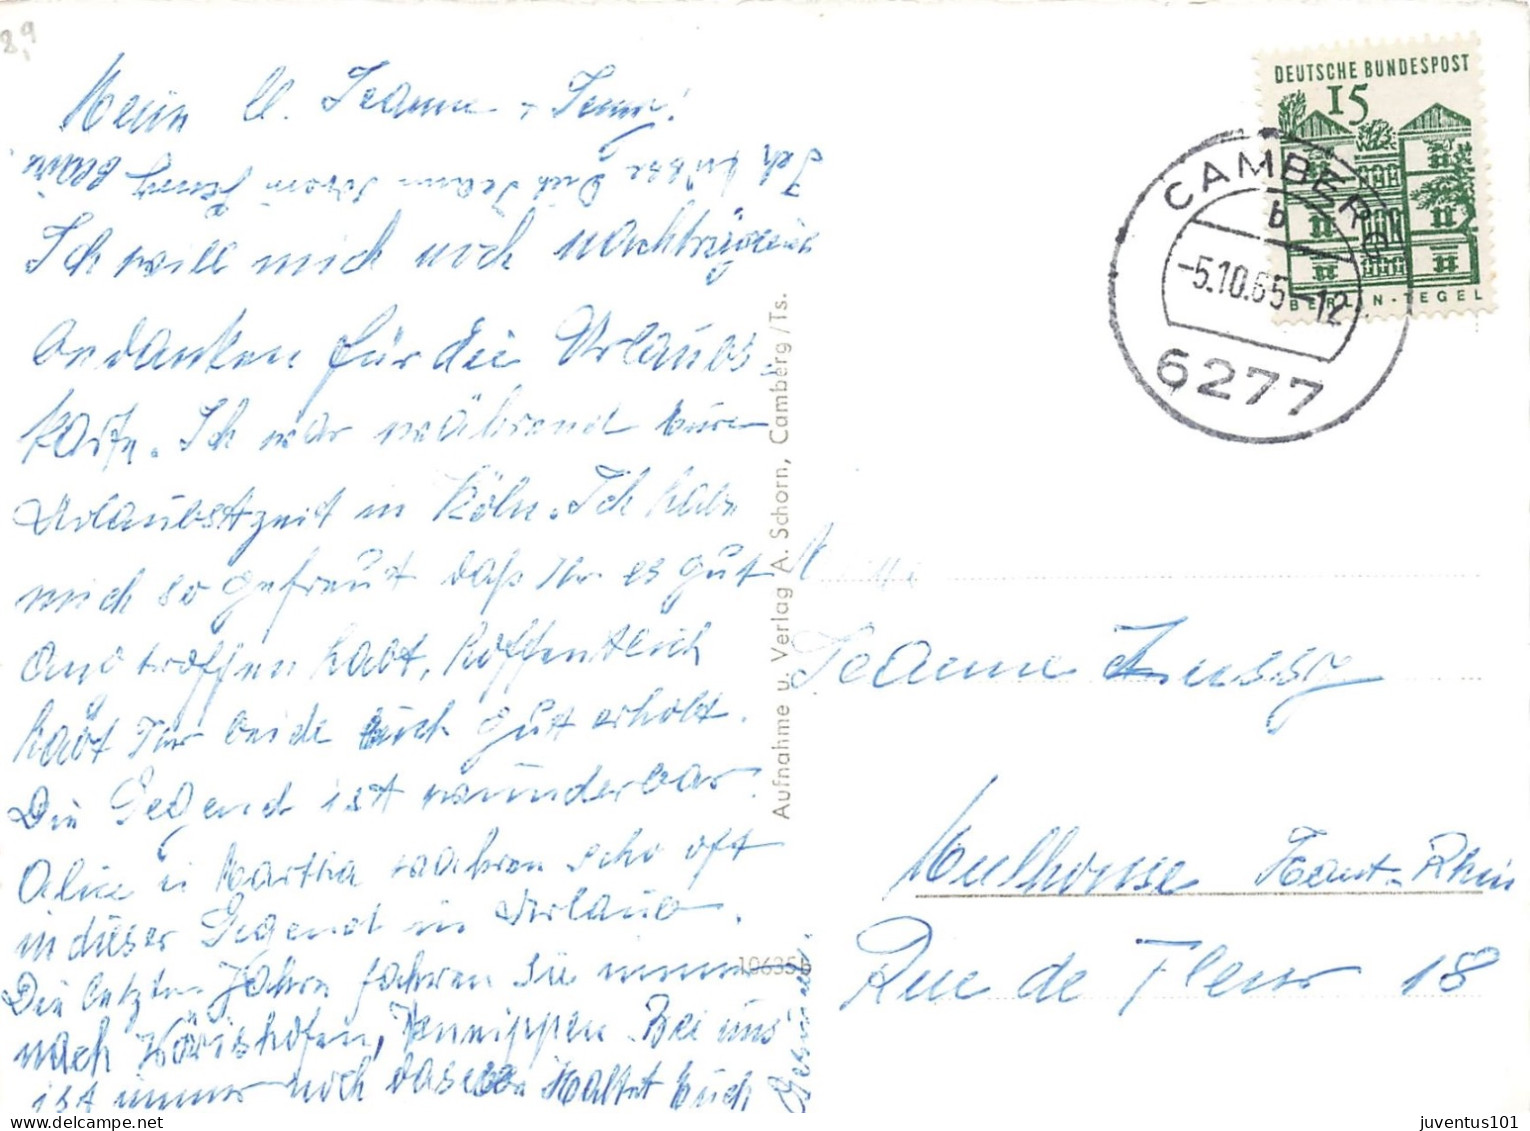 8,9
Mein l. Jeanne + Jenny!
Ich will mich noch nachträglich
bedanken für die Urlaubs-
karte. Ich war während eurer
Urlaubszeit in Köln. Ich habe
mich so gefreut daß Ihr es gut
angetroffen habt, hoffentlich
habt Ihr beide Euch gut erholt.
Die Gegend ist wunderbar.
Alice u Martha waren scho oft
in dieser Gegend in Urlaub.
Die letzten Jahre fahren sie immer
nach Wörishofen, Kneippen. Bei uns
ist immer noch dasselbe Haltet Euch
Gesund.
Ich grüsse Dich
Jenny
Aufnahme u. Verlag A. Schorn, Camberg/Ts.
106355
DEUTSCHE BUNDESPOST
15
BERLIN-TEGEL
CAMBERG
b
-5.10.65-12
6277
Jeanne Lussy
Mulhouse Haut-Rhin
Rue de Fleur 18
juventus101